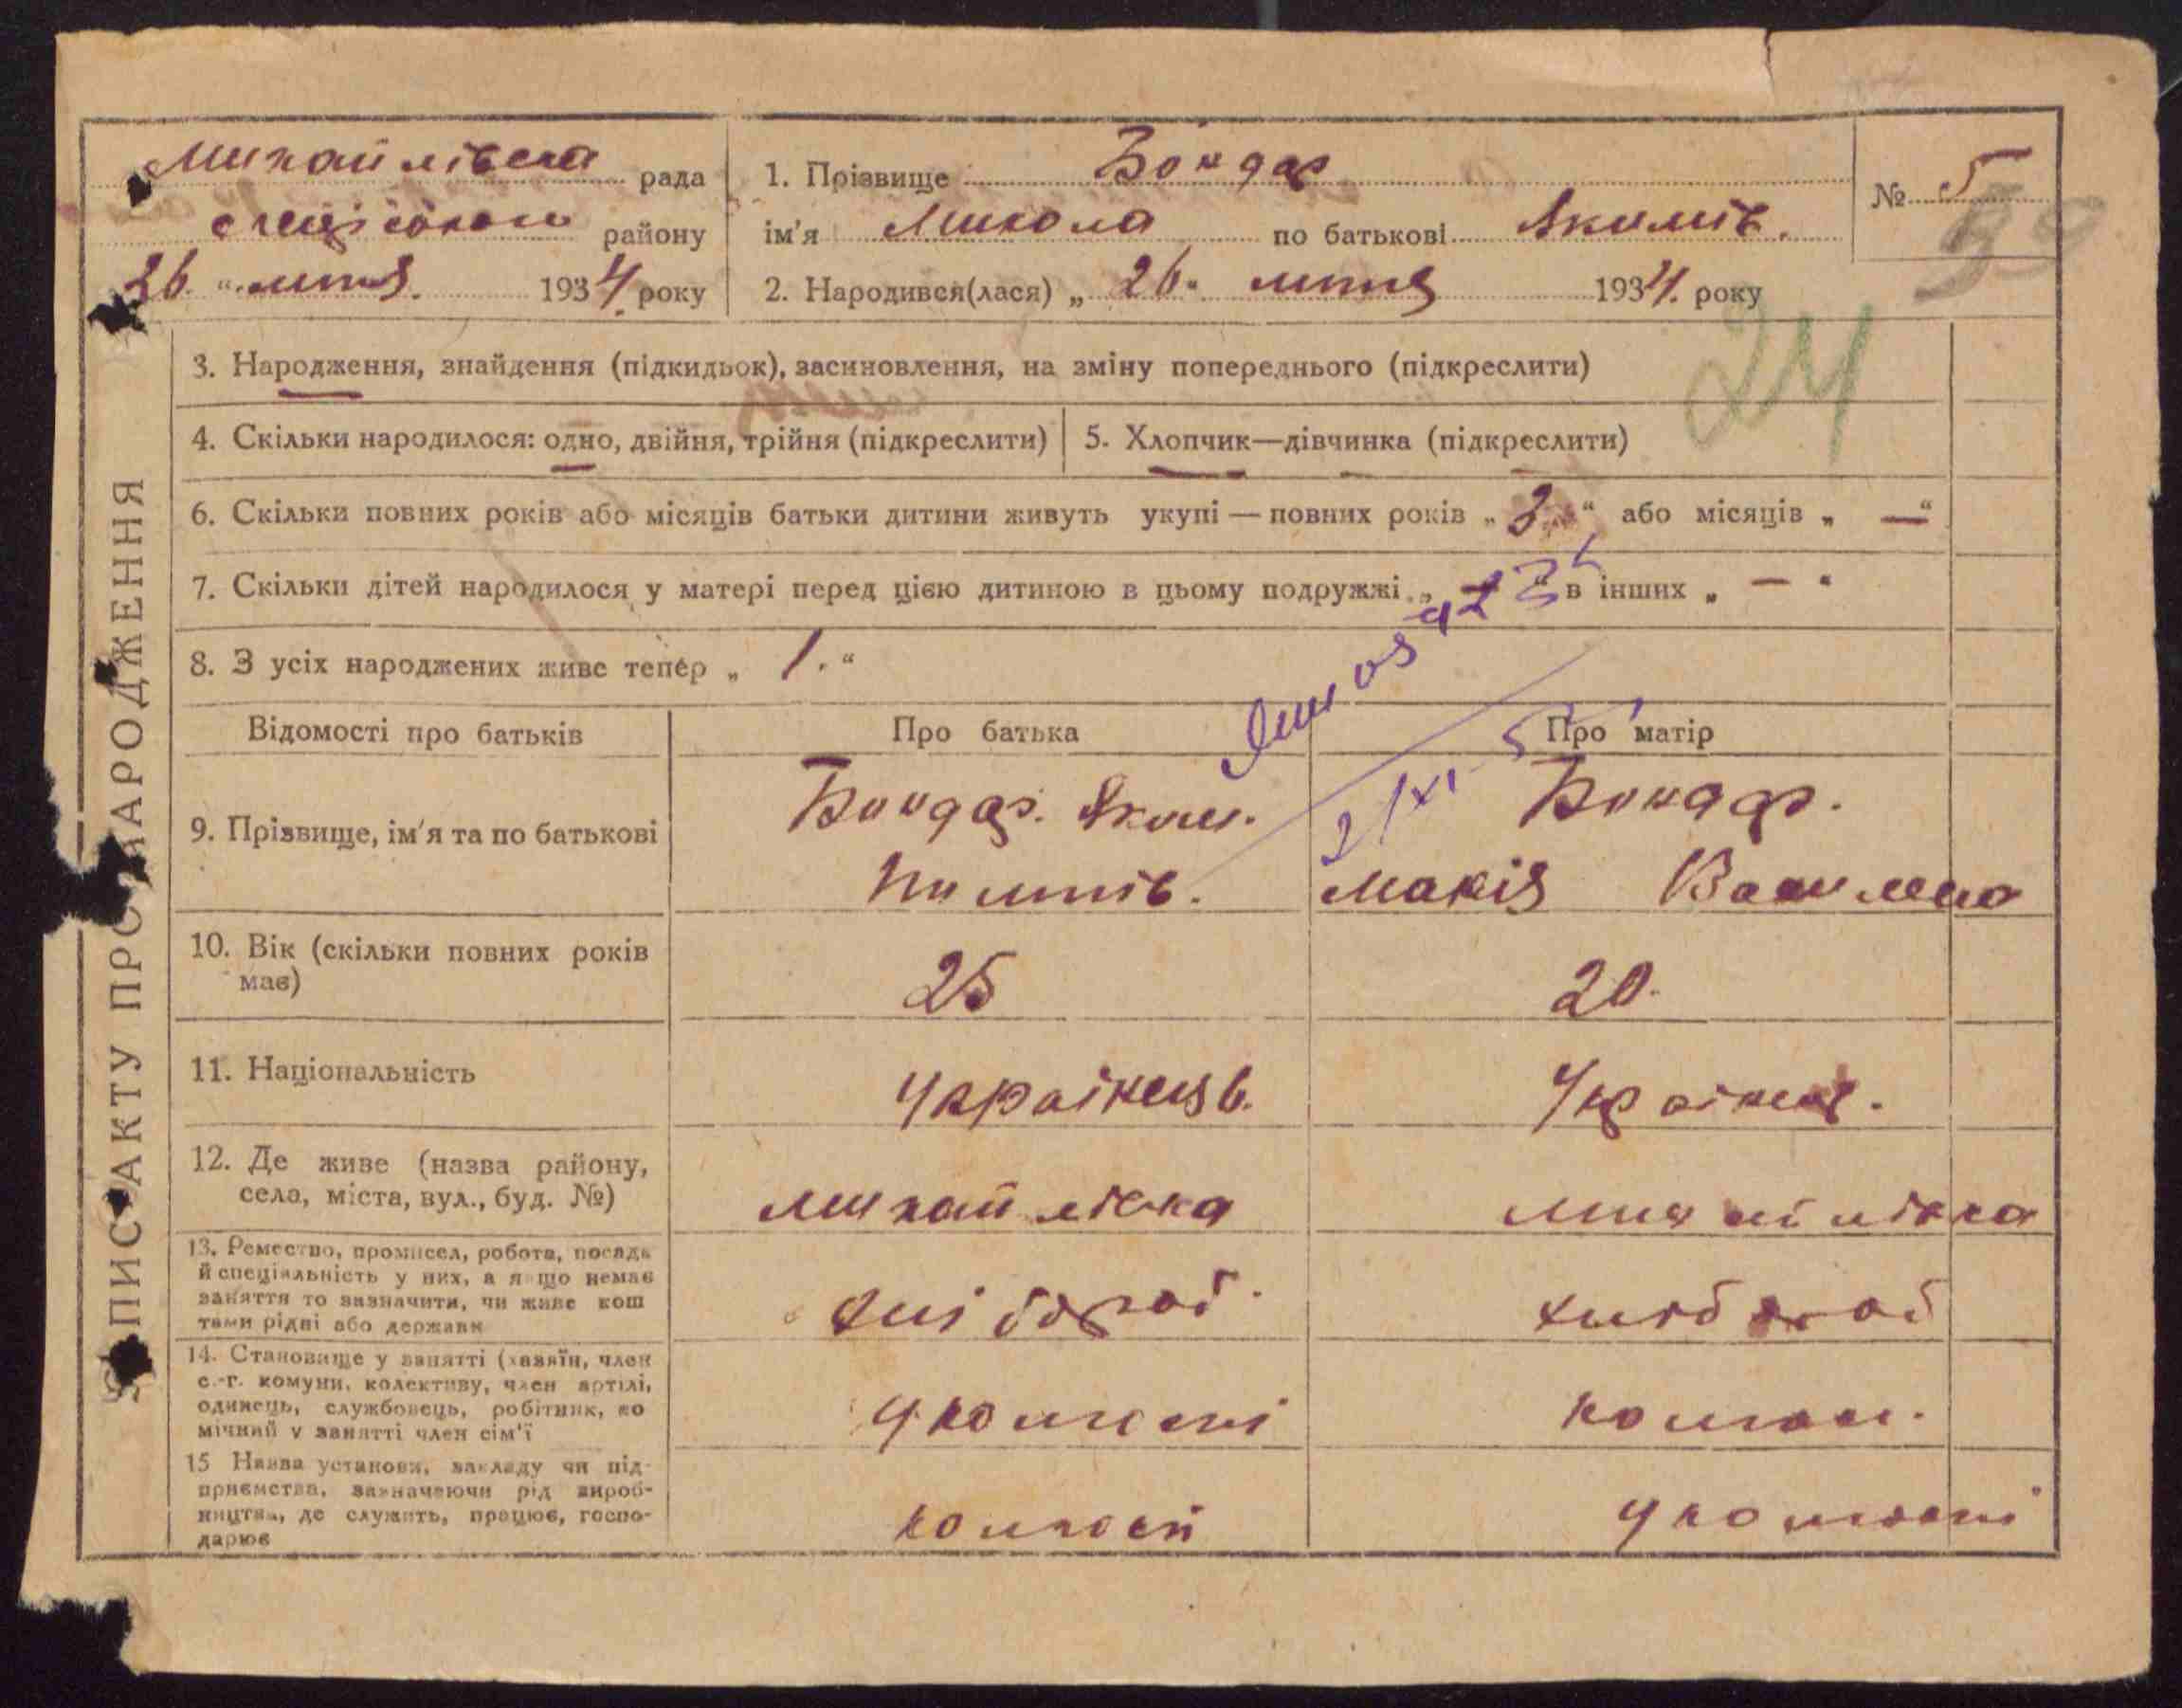 Михайлівска рада
району
26 " липня 1934 року
1. Прізвище Бондар
ім'я Микола по батькові Якимів.
2. Народився(лася) „ 26 " липня 1934. року
№ 5
39
24
3. Народження, знайдення (підкидьок), засиновлення, на зміну попереднього (підкреслити)
4. Скільки народилося: одно, двійня, трійня (підкреслити)
5. Хлопчик—дівчинка (підкреслити)
6. Скільки повних років або місяців батьки дитини живуть укупі — повних років „ 3 " або місяців „ — "
7. Скільки дітей народилося у матері перед цією дитиною в цьому подружжі „ " в інших „ — "
8. З усіх народжених живе тепер „ 1. "
Відомості про батьків
Про батька
Про матір
9. Прізвище, ім'я та по батькові
Бондар. Яким.
Пилипів.
Бондар.
Марія
10. Вік (скільки повних років
має)
25
20.
11. Національність
Українець.
12. Де живе (назва району,
села, міста, вул., буд. №)
Михайлівка
Михайлівка
13. Ремество, промисел, робота, посада
й спеціяльність у них, а якщо немає
заняття то зазначити, чи живе кош
тами рідні або держави
хлібороб.
хлібороб
14. Становище у занятті (хазяїн, член
с.-г. комуни, колективу, член артілі,
одинець, службовець, робітник, по
мічний у занятті член сім'ї
у колгоспі
колгос.
15 Назва установи, закладу чи під-
приємства, зазначаючи рід вироб-
ництва, де служить, працює, госпо-
дарює
колгосп
у колгоспі
ЗАПИС АКТУ ПРО НАРОДЖЕННЯ